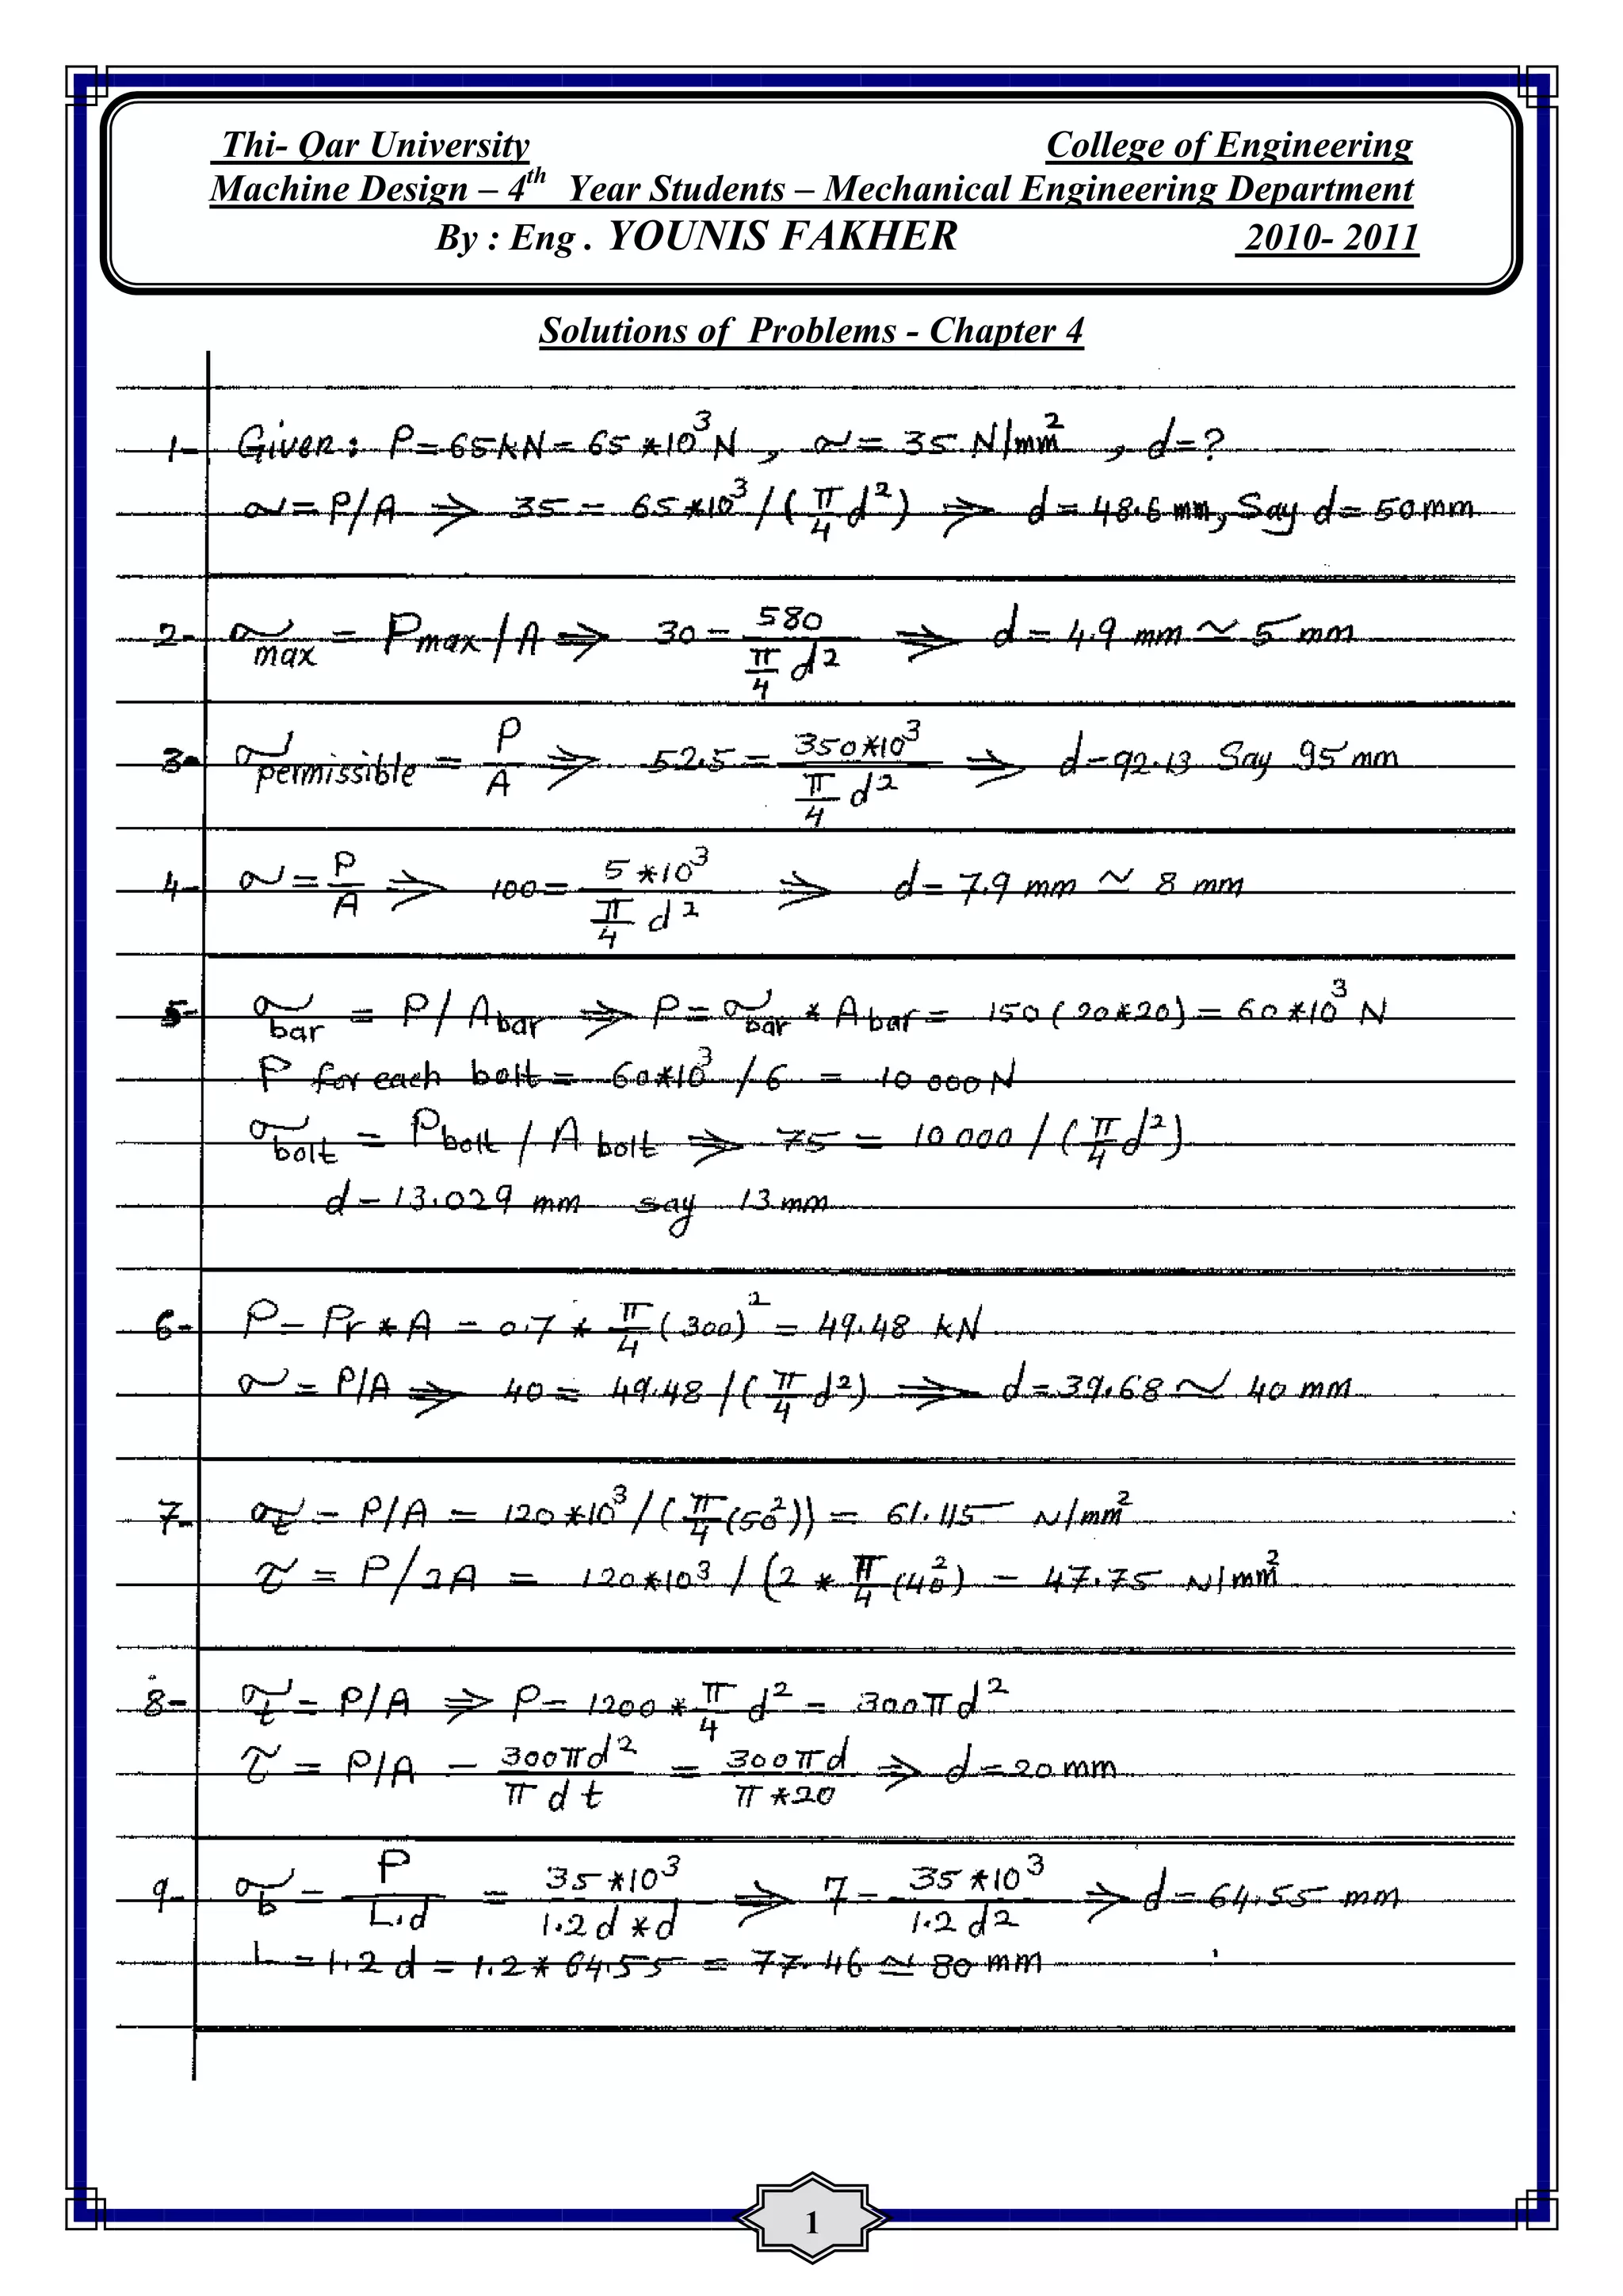 Thi- Qar University College of Engineering
Machine Design – 4th Year Students – Mechanical Engineering Department
By : Eng . YOUNIS FAKHER 2010- 2011
Solutions of Problems - Chapter 4
1- Given: P=65kN=65*10³N, σ=35 N/mm², d=?
σ=P/A ⇒ 35=65*10³/(π/4 d²) ⇒ d=48.6 mm, Say d=50mm
2- σmax = Pmax/A ⇒ 30=580/(π/4 d²) ⇒ d=4.9 mm ≃ 5 mm
3- σpermissible = P/A ⇒ 52.5=350*10³/(π/4 d²) ⇒ d=92.13 Say 95 mm
4- σ=P/A ⇒ 100=5*10³/(π/4 d²) ⇒ d=7.9 mm ≃ 8 mm
5- σbar = P/Abar ⇒ P=σbar * Abar = 150(20*20)=60*10³ N
P for each bolt = 60*10³/6 = 10 000N
σbolt = Pbolt/A bolt ⇒ 75 = 10 000/(π/4 d²)
d=13.029 mm say 13 mm
6- P= Pr*A = 0.7*π/4(300)² = 49.48 kN
σ=P/A ⇒ 40=49.48/(π/4 d²) ⇒ d=39.68 ≃ 40 mm
7- σt=P/A = 120*10³/(π/4(50²)) = 61.115 N/mm²
τ = P/2A = 120*10³/(2*π/4(40²) = 47.75 N/mm²
8- σt=P/A ⇒ P=1200*π/4 d² = 300πd²
τ = P/A = 300πd²/π d t = 300πd/π*20 ⇒ d=20mm
9- σb = P/L.d = 35*10³/1.2d*d ⇒ 7=35*10³/1.2 d² ⇒ d=64.55 mm
L=1.2 d=1.2*64.55 = 77.46 ≃ 80 mm
1